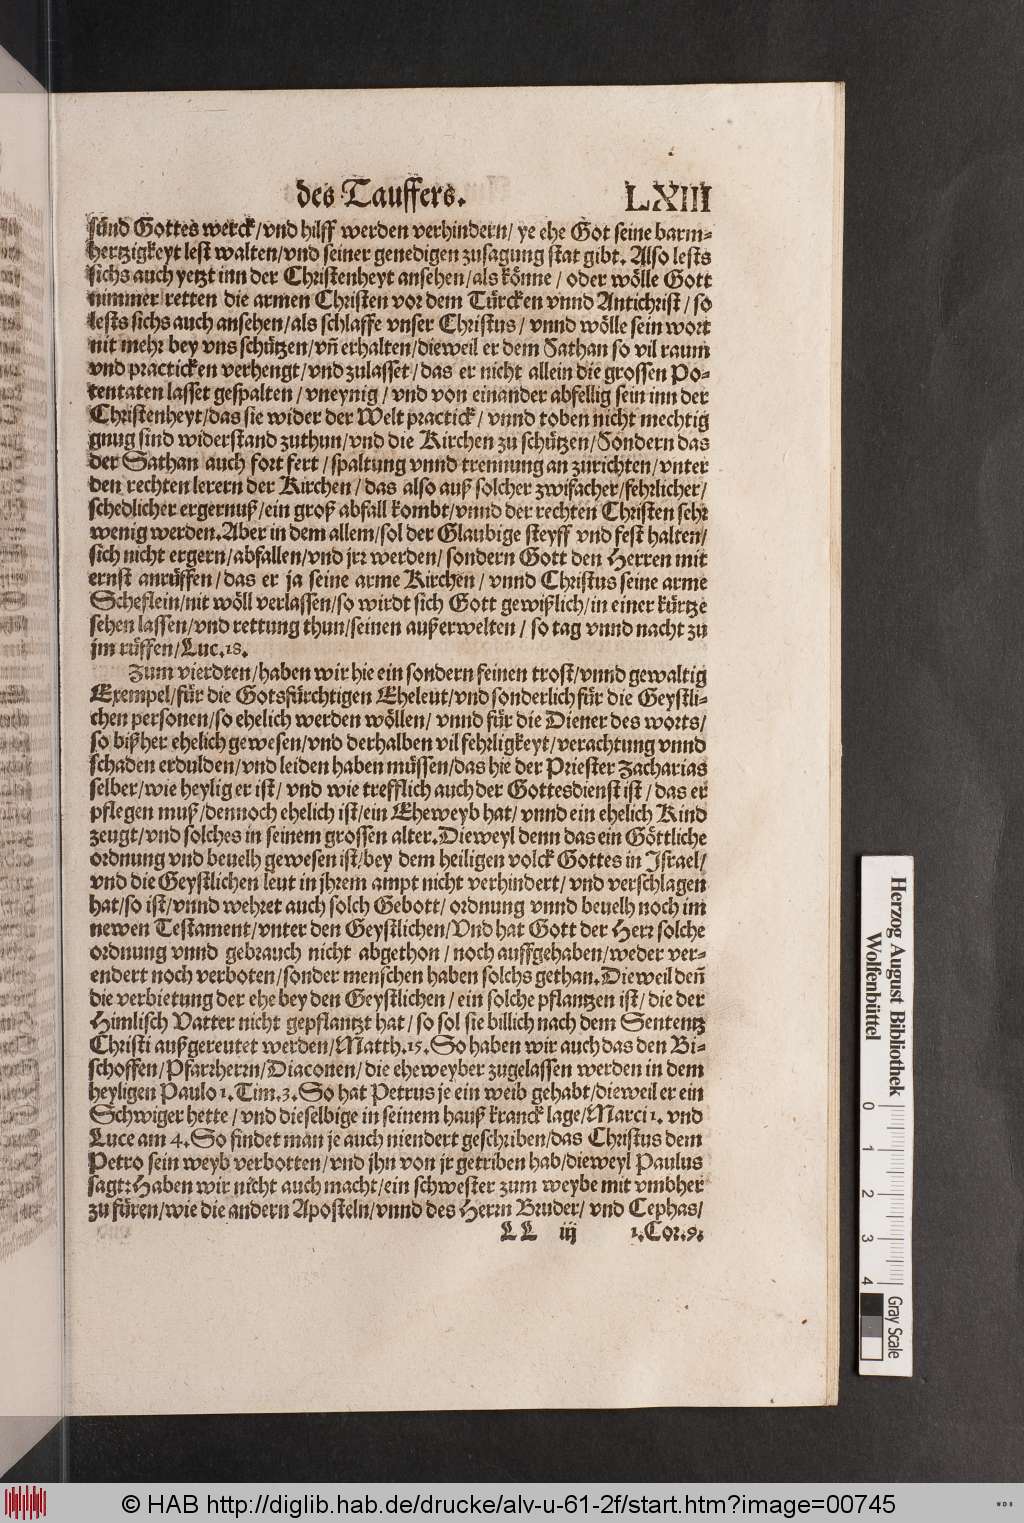 des Tauffers. LXIII
sünd Gottes werck/vnd hilff werden verhindern/ ye ehe Got seine barm⸗
hertzigkeyt lest walten/vnd seiner genedigen zusagung stat gibt. Also lests
sichs auch yetzt inn der Christenheyt ansehen/als könne / oder wölle Gott
nimmer retten die armen Christen vor dem Türcken vnnd Antichrist/ so
lests sichs auch ansehen/als schlaffe vnser Christus/ vnnd wölle sein wort
nit mehr bey vns schützen/vñ erhalten/dieweil er dem Sathan so vil raum
vnd practicken verhengt/vnd zulasset/das er nicht allein die grossen Po⸗
tentaten lasset gespalten/vneynig/ vnd von einander abfellig sein inn der
Christenheyt/das sie wider der Welt practick/ vnnd toben nicht mechtig
gnug sind widerstand zuthun/vnd die Kirchen zu schützen/Sondern das
der Sathan auch fort fert/spaltung vnnd trennung an zurichten/vnter
den rechten lerern der Kirchen/das also auß solcher zwifacher/fehrlicher/
schedlicher ergernuß/ein groß abfall kombt/vnnd der rechten Christen sehr
wenig werden.Aber in dem allem/sol der Glaubige steyff vnd fest halten/
sich nicht ergern/abfallen/vnd jrr werden/ sondern Gott den Herren mit
ernst anrüffen/das er ja seine arme Kirchen/ vnnd Christus seine arme
Scheflein/nit wöll verlassen/so wirdt sich Gott gewißlich/in einer kürtze
sehen lassen/vnd rettung thun/seinen außerwelten / so tag vnnd nacht zu
jm rüffen/Luc.18.
Zum vierdten/haben wir hie ein sondern feinen trost/vnnd gewaltig
Exempel/für die Gotsfürchtigen Eheleut/vnd sonderlich für die Geystli⸗
chen personen/so ehelich werden wöllen/ vnnd für die Diener des worts/
so bißher ehelich gewesen/vnd derhalben vil fehrligkeyt/verachtung vnnd
schaden erdulden/vnd leiden haben müssen/das hie der Priester Zacharias
selber/wie heylig er ist/ vnd wie trefflich auch der Gottesdienst ist/ das er
pflegen muß/dennoch ehelich ist/ein Eheweyb hat/ vnnd ein ehelich Kind
zeugt/vnd solches in seinem grossen alter.Dieweyl denn das ein Göttliche
ordnung vnd beuelh gewesen ist/bey dem heiligen volck Gottes in Israel/
vnd die Geystlichen leut in jhrem ampt nicht verhindert/ vnd verschlagen
hat/so ist/vnnd wehret auch solch Gebott/ ordnung vnnd beuelh noch im
newen Testament/vnter den Geystlichen/Vnd hat Gott der Herr solche
ordnung vnnd gebrauch nicht abgethon/noch auffgehaben/weder ver⸗
endert noch verboten/sonder menschen haben solchs gethan.Dieweil deñ
die verbietung der ehe bey den Geystlichen/ein solche pflantzen ist/die der
Himlisch Vatter nicht gepflantzt hat/so sol sie billich nach dem Sententz
Christi außgereutet werden/Matth.15.So haben wir auch das den Bi⸗
schoffen/Pfarrherrn/Diaconen/die eheweyber zugelassen werden in dem
heyligen Paulo 1.Tim.3.So hat Petrus je ein weib gehabt/dieweil er ein
Schwiger hette/vnd dieselbige in seinem hauß kranck lage/Marci 1. vnd
Luce am 4.So findet man je auch niendert geschriben/das Christus dem
Petro sein weyb verbotten/vnd jhn von jr getriben hab/dieweyl Paulus
sagt:Haben wir nicht auch macht/ein schwester zum weybe mit vmbher
zu füren/wie die andern Aposteln/vnnd des Herrn Bruder/ vnd Cephas/
LL iij 1.Cor.9.
Herzog August Bibliothek
Wolfenbüttel
0 1 2 3 4
Gray Scale
© HAB http://diglib.hab.de/drucke/alv-u-61-2f/start.htm?image=00745